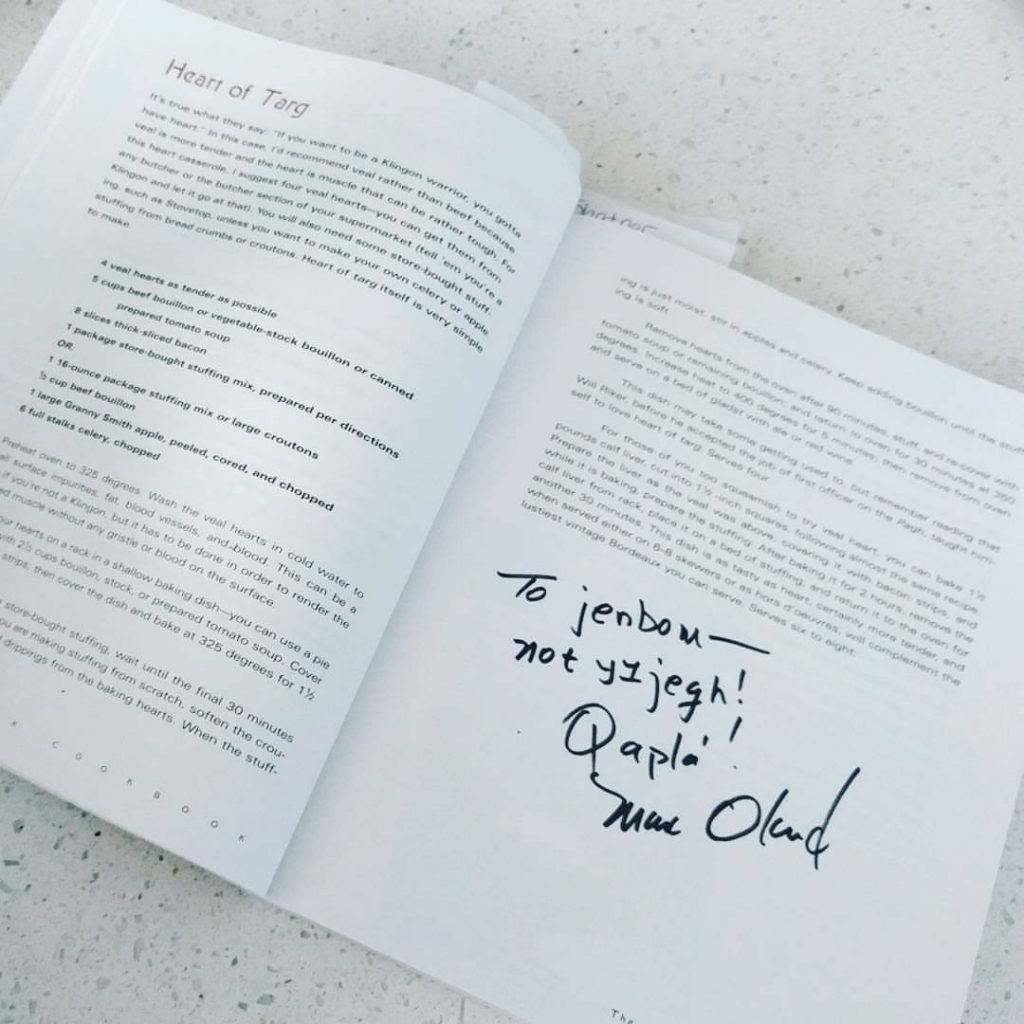 Heart of Targ
It's true what they say: "If you want to be a Klingon warrior, you gotta
have heart." In this case, I'd recommend veal rather than beef because
veal is more tender and the heart is muscle that can be rather tough. For
this heart casserole, I suggest four veal hearts—you can get them from
any butcher or the butcher section of your supermarket (tell 'em you're a
Klingon and let it go at that). You will also need some store-bought stuff-
ing, such as Stovetop, unless you want to make your own celery or apple
stuffing from bread crumbs or croutons. Heart of targ itself is very simple
to make.
4 veal hearts as tender as possible
5 cups beef bouillon or vegetable-stock bouillon or canned
prepared tomato soup
8 slices thick-sliced bacon
1 package store-bought stuffing mix, prepared per directions
OR:
1 16-ounce package stuffing mix or large croutons
½ cup beef bouillon
1 large Granny Smith apple, peeled, cored, and chopped
6 full stalks celery, chopped
Preheat oven to 325 degrees. Wash the veal hearts in cold water to
all surface impurities, fat, blood vessels, and blood. This can be a
if you're not a Klingon, but it has to be done in order to render the
muscle without any gristle or blood on the surface.
our hearts on a rack in a shallow baking dish—you can use a pie
with 2½ cups bouillon, stock, or prepared tomato soup. Cover
strips, then cover the dish and bake at 325 degrees for 1½
store-bought stuffing, wait until the final 30 minutes
you are making stuffing from scratch, soften the crou-
drippings from the baking hearts. When the stuff-
K COOKBOOK
ing is just moist, stir in apples and celery. Keep adding bouillon until the stuff
ing is soft.
Remove hearts from the oven after 90 minutes, stuff, and re-cover with
tomato soup or remaining bouillon, and return to oven for 30 minutes at 350
degrees. Increase heat to 400 degrees for 5 minutes, then remove from oven
and serve on a bed of gladst with ale or red wine.
This dish may take some getting used to, but remember reading that
Will Riker, before he accepted the job of first officer on the Pagh, taught him-
self to love heart of targ. Serves four.
For those of you too squeamish to try veal heart, you can bake 1½
pounds calf liver, cut into 1½-inch squares, following almost the same recipe.
Prepare the liver as the veal was above, covering it with bacon strips, and
while it is baking, prepare the stuffing. After baking it for 2 hours, remove the
calf liver from rack, place it on a bed of stuffing, and return it to the oven for
another 30 minutes. This dish is as tasty as heart, certainly more tender, and
when served either on 6-8 skewers or as hors d'oeuvres, will complement the
lustiest vintage Bordeaux you can serve. Serves six to eight.
To jenbom—
not yIjegh!
Qapla'!
Marc Okrand
The